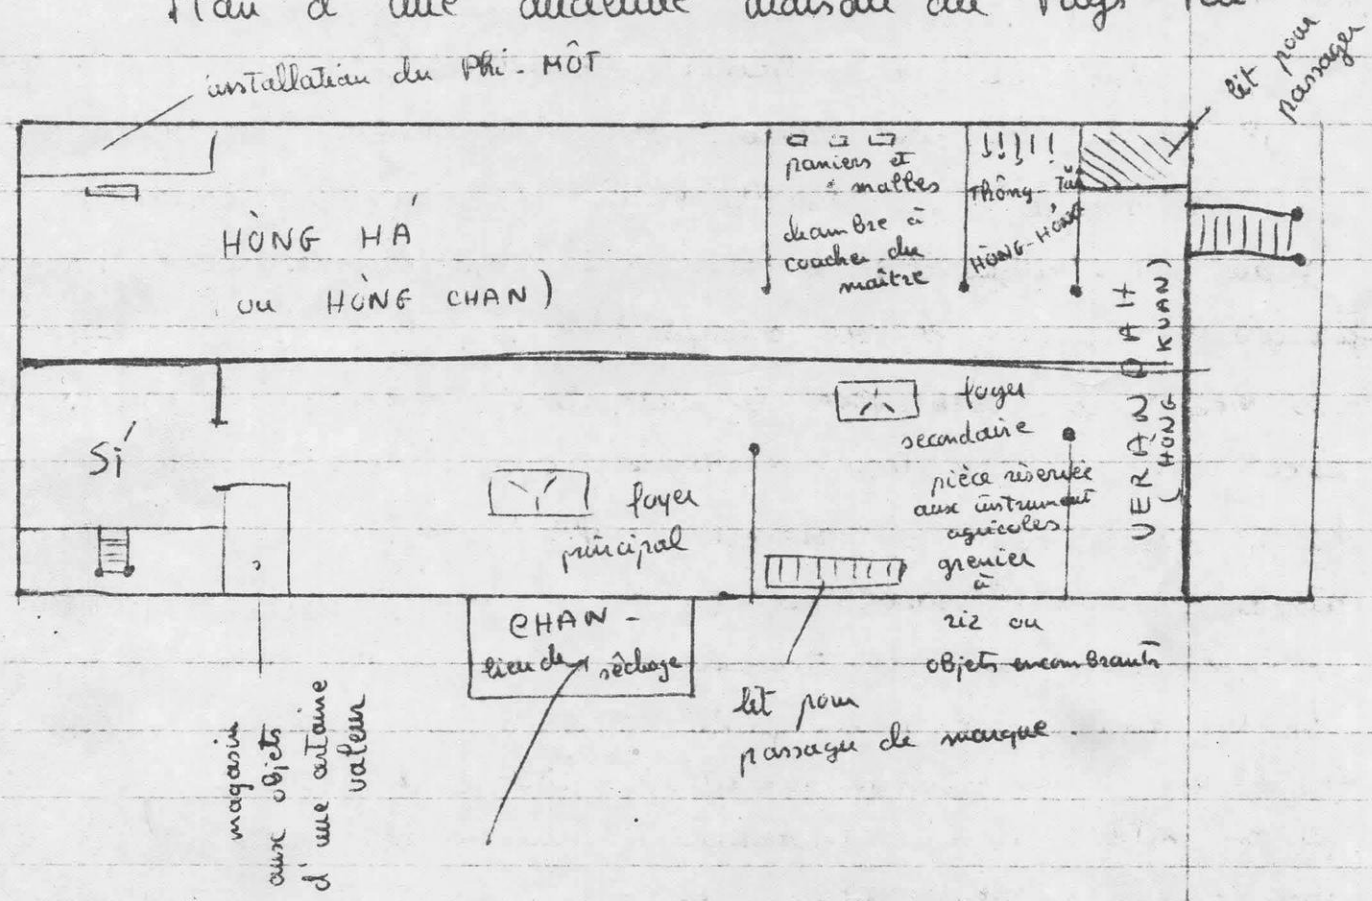 Plan d'une ancienne maison du Pays
installation du Phi-MÔT
lit pour
passager
paniers et
malles
chambre à
coucher du
maître
Thông-
HÒNG-HÓNG
HÒNG HÁ
ou HÒNG CHAN)
VERANDAH
(HÒNG KUAN)
SÍ
foyer
secondaire
foyer
principal
pièce réservée
aux instrument
agricoles
grenier
à
riz ou
objets encombrants
CHAN -
lieu de séchage
lit pour
passager de marque
magasin
aux objets
d'une certaine
valeur